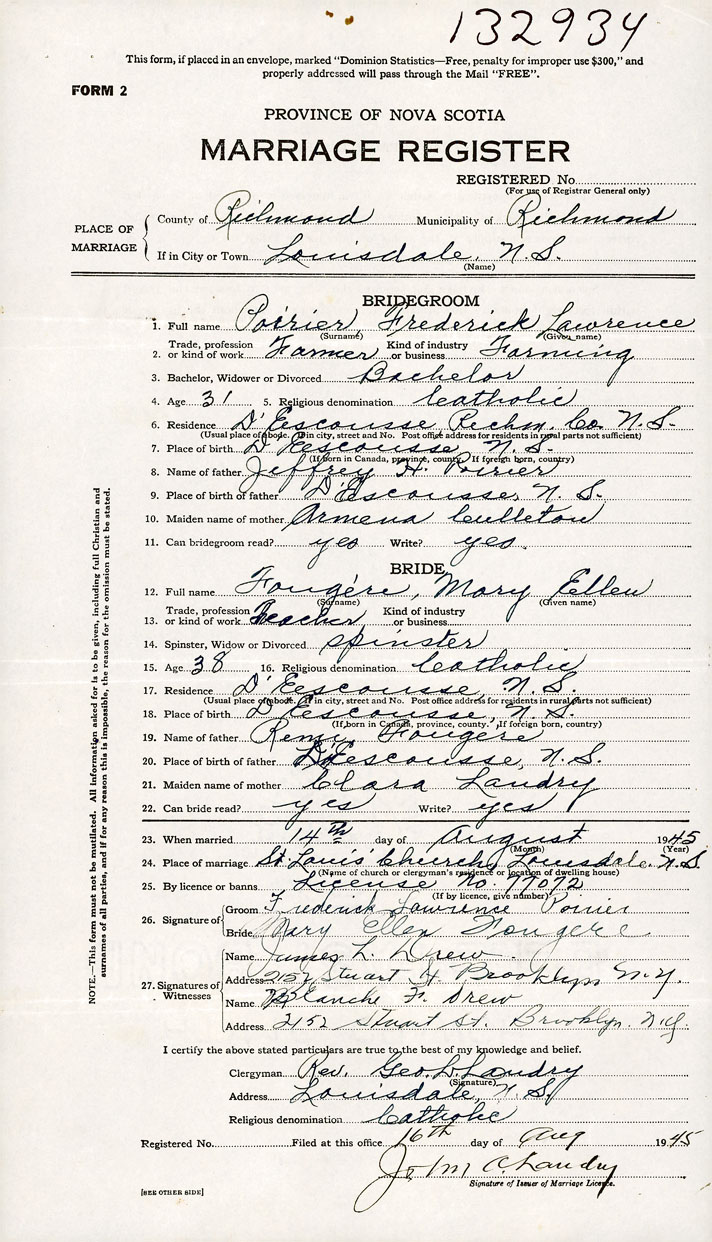 132934
This form, if placed in an envelope, marked "Dominion Statistics—Free, penalty for improper use $300," and
properly addressed will pass through the Mail "FREE".
FORM 2
PROVINCE OF NOVA SCOTIA
MARRIAGE REGISTER
REGISTERED No.
(For use of Registrar General only)
PLACE OF MARRIAGE
County of Richmond Municipality of Richmond
If in City or Town Louisdale, N.S.
(Name)
BRIDEGROOM
1. Full name Poirier, Frederick Lawrence
(Surname) (Given name)
2. Trade, profession or kind of work Farmer Kind of industry or business Farming
3. Bachelor, Widower or Divorced Bachelor
4. Age 31 5. Religious denomination Catholic
6. Residence D'Eescousse Richm. Co. N.S.
(Usual place of abode. If in city, street and No. Post office address for residents in rural parts not sufficient)
7. Place of birth D'Eescousse, N.S.
(If born in Canada, province, county. If foreign born, country)
8. Name of father Jeffrey H. Poirier
9. Place of birth of father D'Escousse, N.S.
10. Maiden name of mother Armena Culleton
11. Can bridegroom read? yes Write? yes.
BRIDE
12. Full name Fougère, Mary Ellen
(Surname) (Given name)
13. Trade, profession or kind of work Teacher Kind of industry or business
14. Spinster, Widow or Divorced spinster
15. Age 38 16. Religious denomination Catholic
17. Residence D'Eescousse, N.S.
(Usual place of abode. If in city, street and No. Post office address for residents in rural parts not sufficient)
18. Place of birth D'Escousse, N.S.
(If born in Canada, province, county. If foreign born, country)
19. Name of father Remi Fougere
20. Place of birth of father D'Escousse, N.S.
21. Maiden name of mother Clara Landry
22. Can bride read? yes Write? yes
23. When married 14th day of August 1945
(Month) (Year)
24. Place of marriage St. Louis' Church, Louisdale, N.S.
(Name of church or clergyman's residence or location of dwelling house)
25. By licence or banns License No. 77072
(If by licence, give number)
26. Signature of Groom Frederick Lawrence Poirier
Bride Mary Ellen Fougere
27. Signatures of Witnesses
Name James L. Drew.
Address 2152 Stuart St. Brooklyn N.Y.
Name Blanche F. Drew
Address 2152 Stuart St. Brooklyn. N.Y.
I certify the above stated particulars are true to the best of my knowledge and belief.
Clergyman Rev. Geo. L. Landry
(Signature)
Address Louisdale, N.S.
Religious denomination Catholic
Registered No. Filed at this office 16th day of Aug 1945
John A. Landry
Signature of Issuer of Marriage Licence.
[SEE OTHER SIDE]
NOTE.—This form must not be mutilated. All information asked for is to be given, including full Christian and
surnames of all parties, and if for any reason this is impossible, the reason for the omission must be stated.